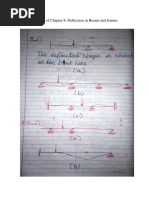 of Chapter 9: Deflection in Beams and frames
The deflected shape is shown
in the bent line
(a)
(b)
(c)
(a)
(b)